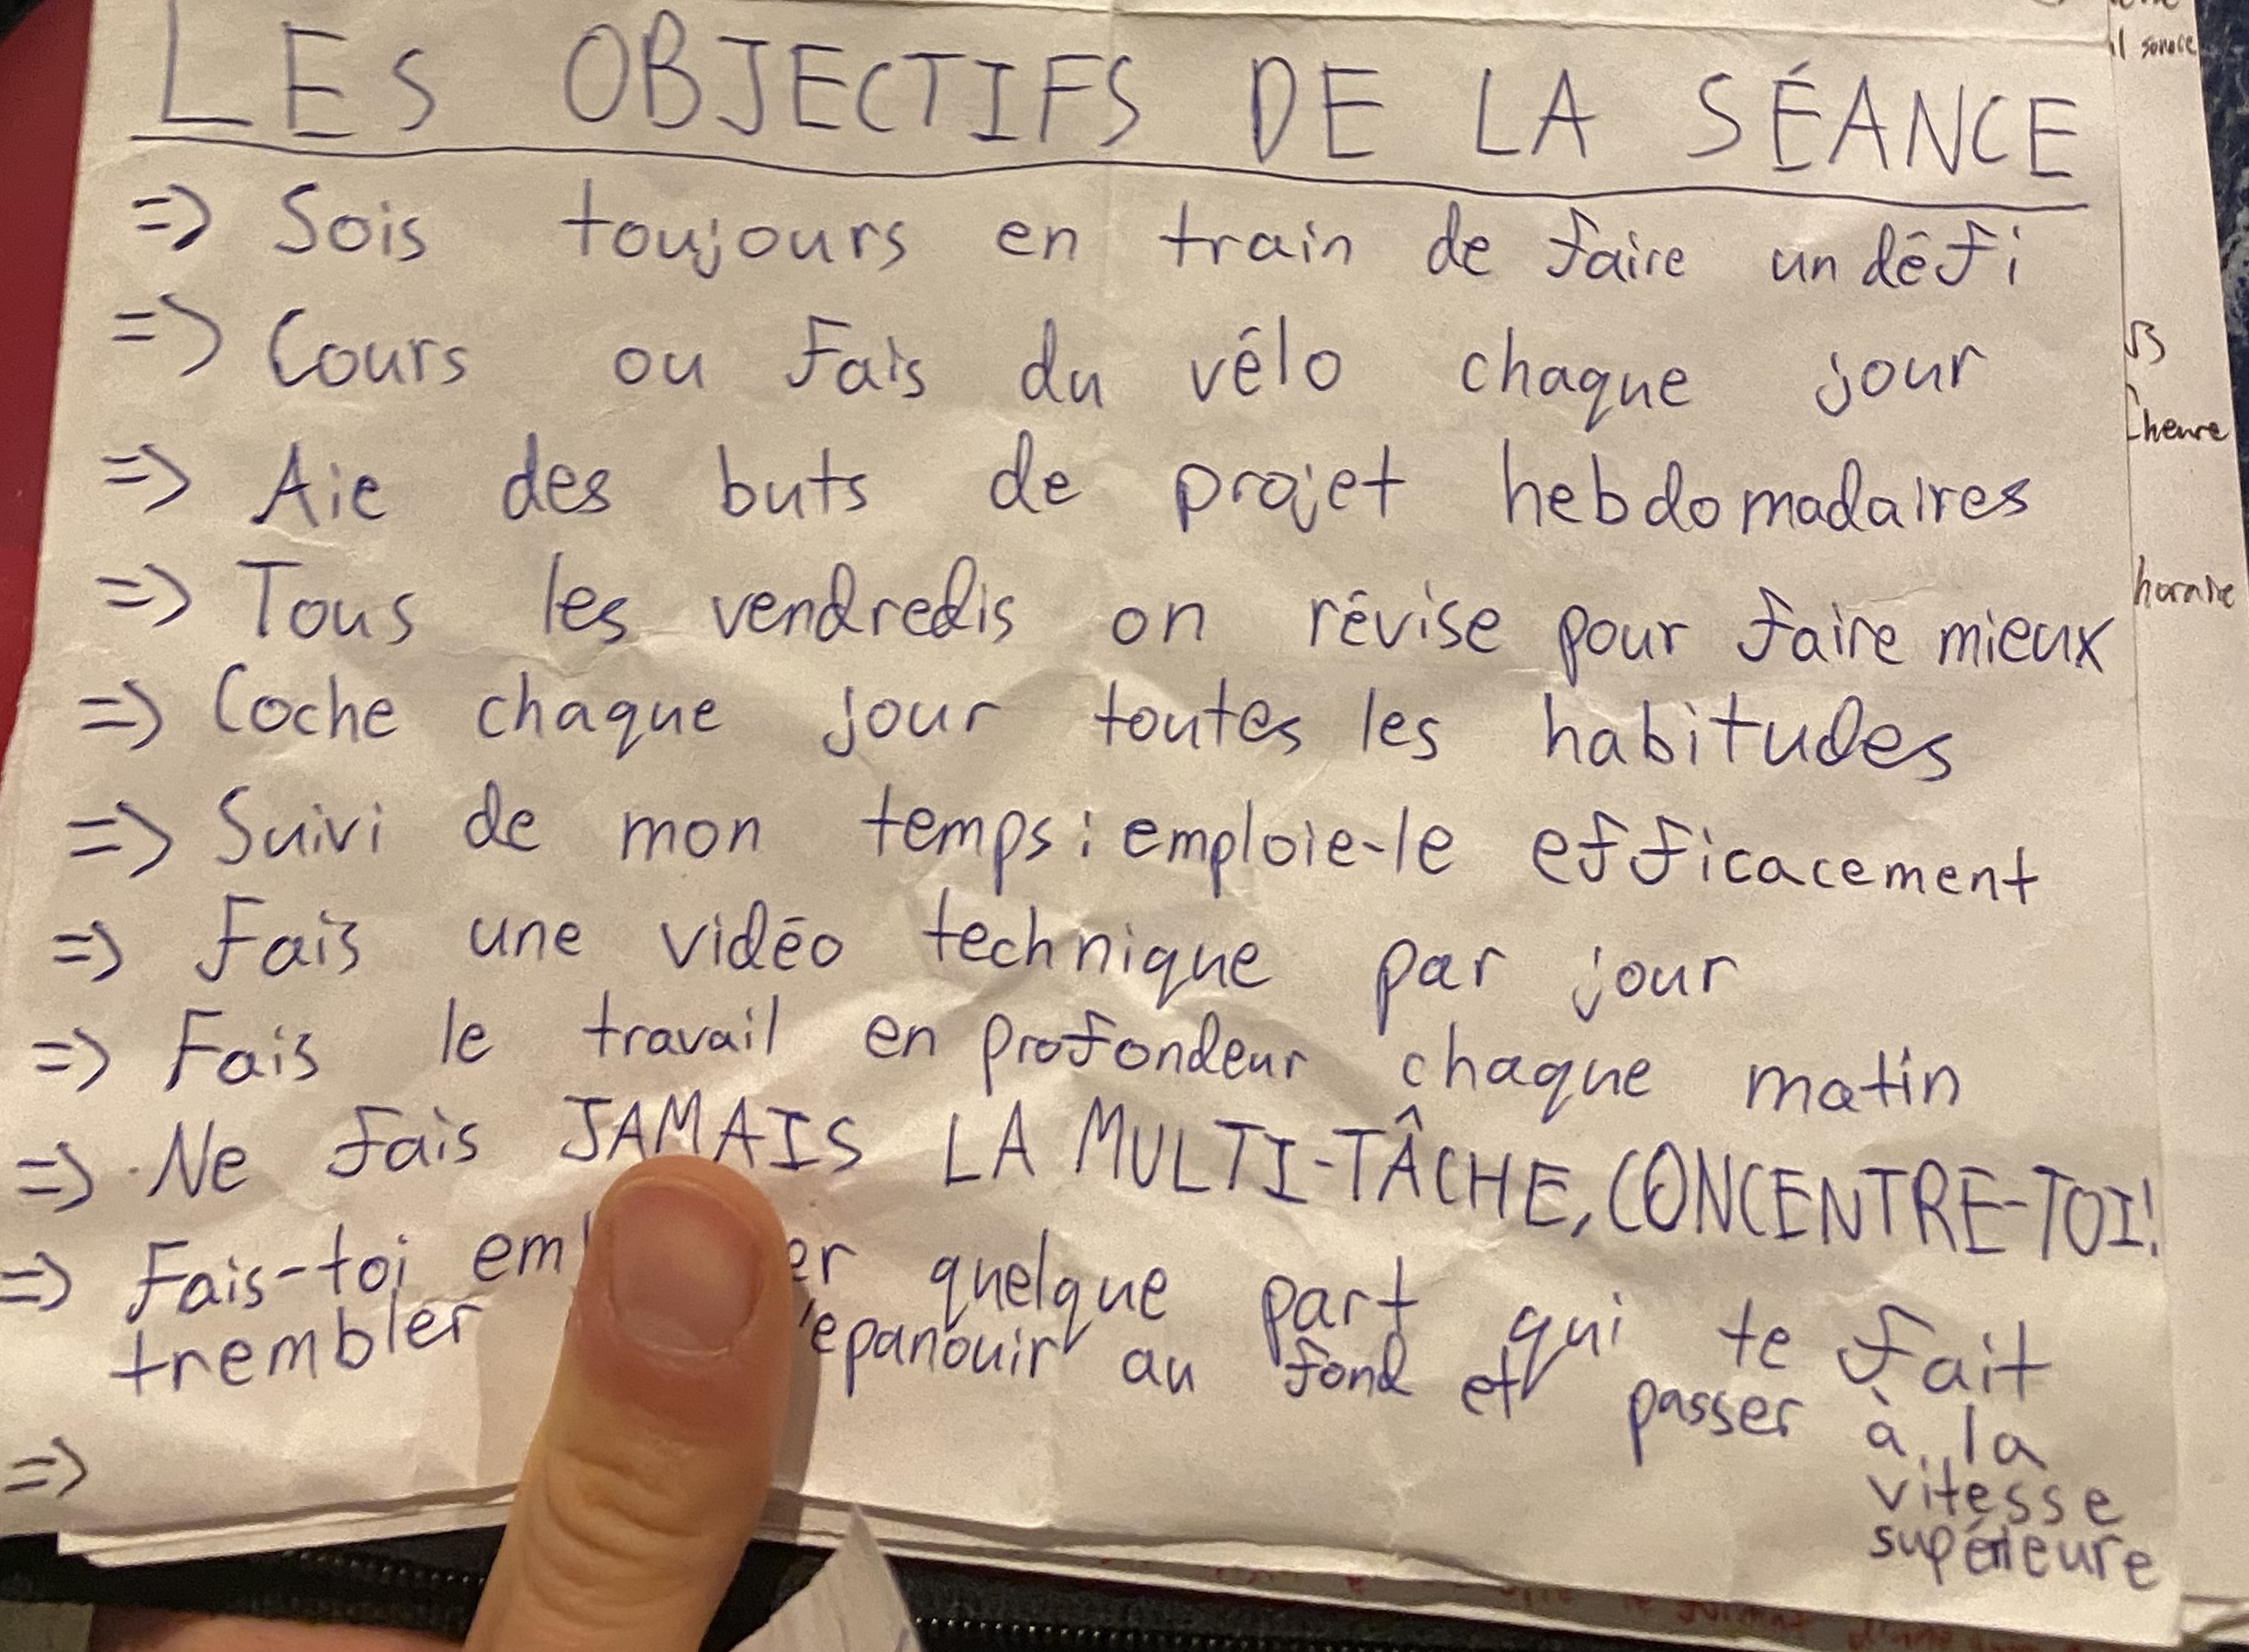 LES OBJECTIFS DE LA SÉANCE
=> Sois toujours en train de faire un défi
=> Cours ou fais du vélo chaque jour
=> Aie des buts de projet hebdomadaires
=> Tous les vendredis on révise pour faire mieux
=> Coche chaque jour toutes les habitudes
=> Suivi de mon temps : emploie-le efficacement
=> Fais une vidéo technique par jour
=> Fais le travail en profondeur chaque matin
=> Ne fais JAMAIS LA MULTI-TÂCHE, CONCENTRE-TOI!
=> Fais-toi quelque part qui te fait
trembler au fond et passer à la
vitesse
supérieure
=>
heure
horaire